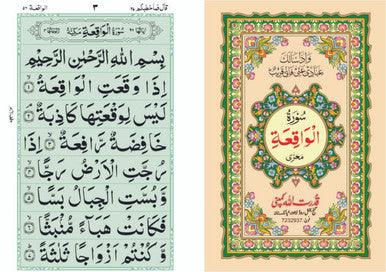 قال فما خطبكم ٢٧
٣
الواقعة ٥٦
سُوْرَةُ الْوَاقِعَةِ مَكِّيَّةٌ
بِسْمِ اللهِ الرَّحْمٰنِ الرَّحِيْمِ
اِذَا وَقَعَتِ الْوَاقِعَةُ ۙ
لَيْسَ لِوَقْعَتِهَا كَاذِبَةٌ ۘ
خَافِضَةٌ رَّافِعَةٌ ۙ اِذَا
رُجَّتِ الْاَرْضُ رَجًّا ۙ
وَّبُسَّتِ الْجِبَالُ بَسًّا ۙ
فَكَانَتْ هَبَآءً مُّنْۢبَثًّا ۙ
وَّكُنْتُمْ اَزْوَاجًا ثَلٰثَةً ؕ
وَاِذَا سَاَلَكَ
عِبَادِيْ عَنِّيْ فَاِنِّيْ قَرِيْبٌ
سُوْرَةُ
الْوَاقِعَةِ
معریٰ
قدرت اللہ کمپنی
7232937